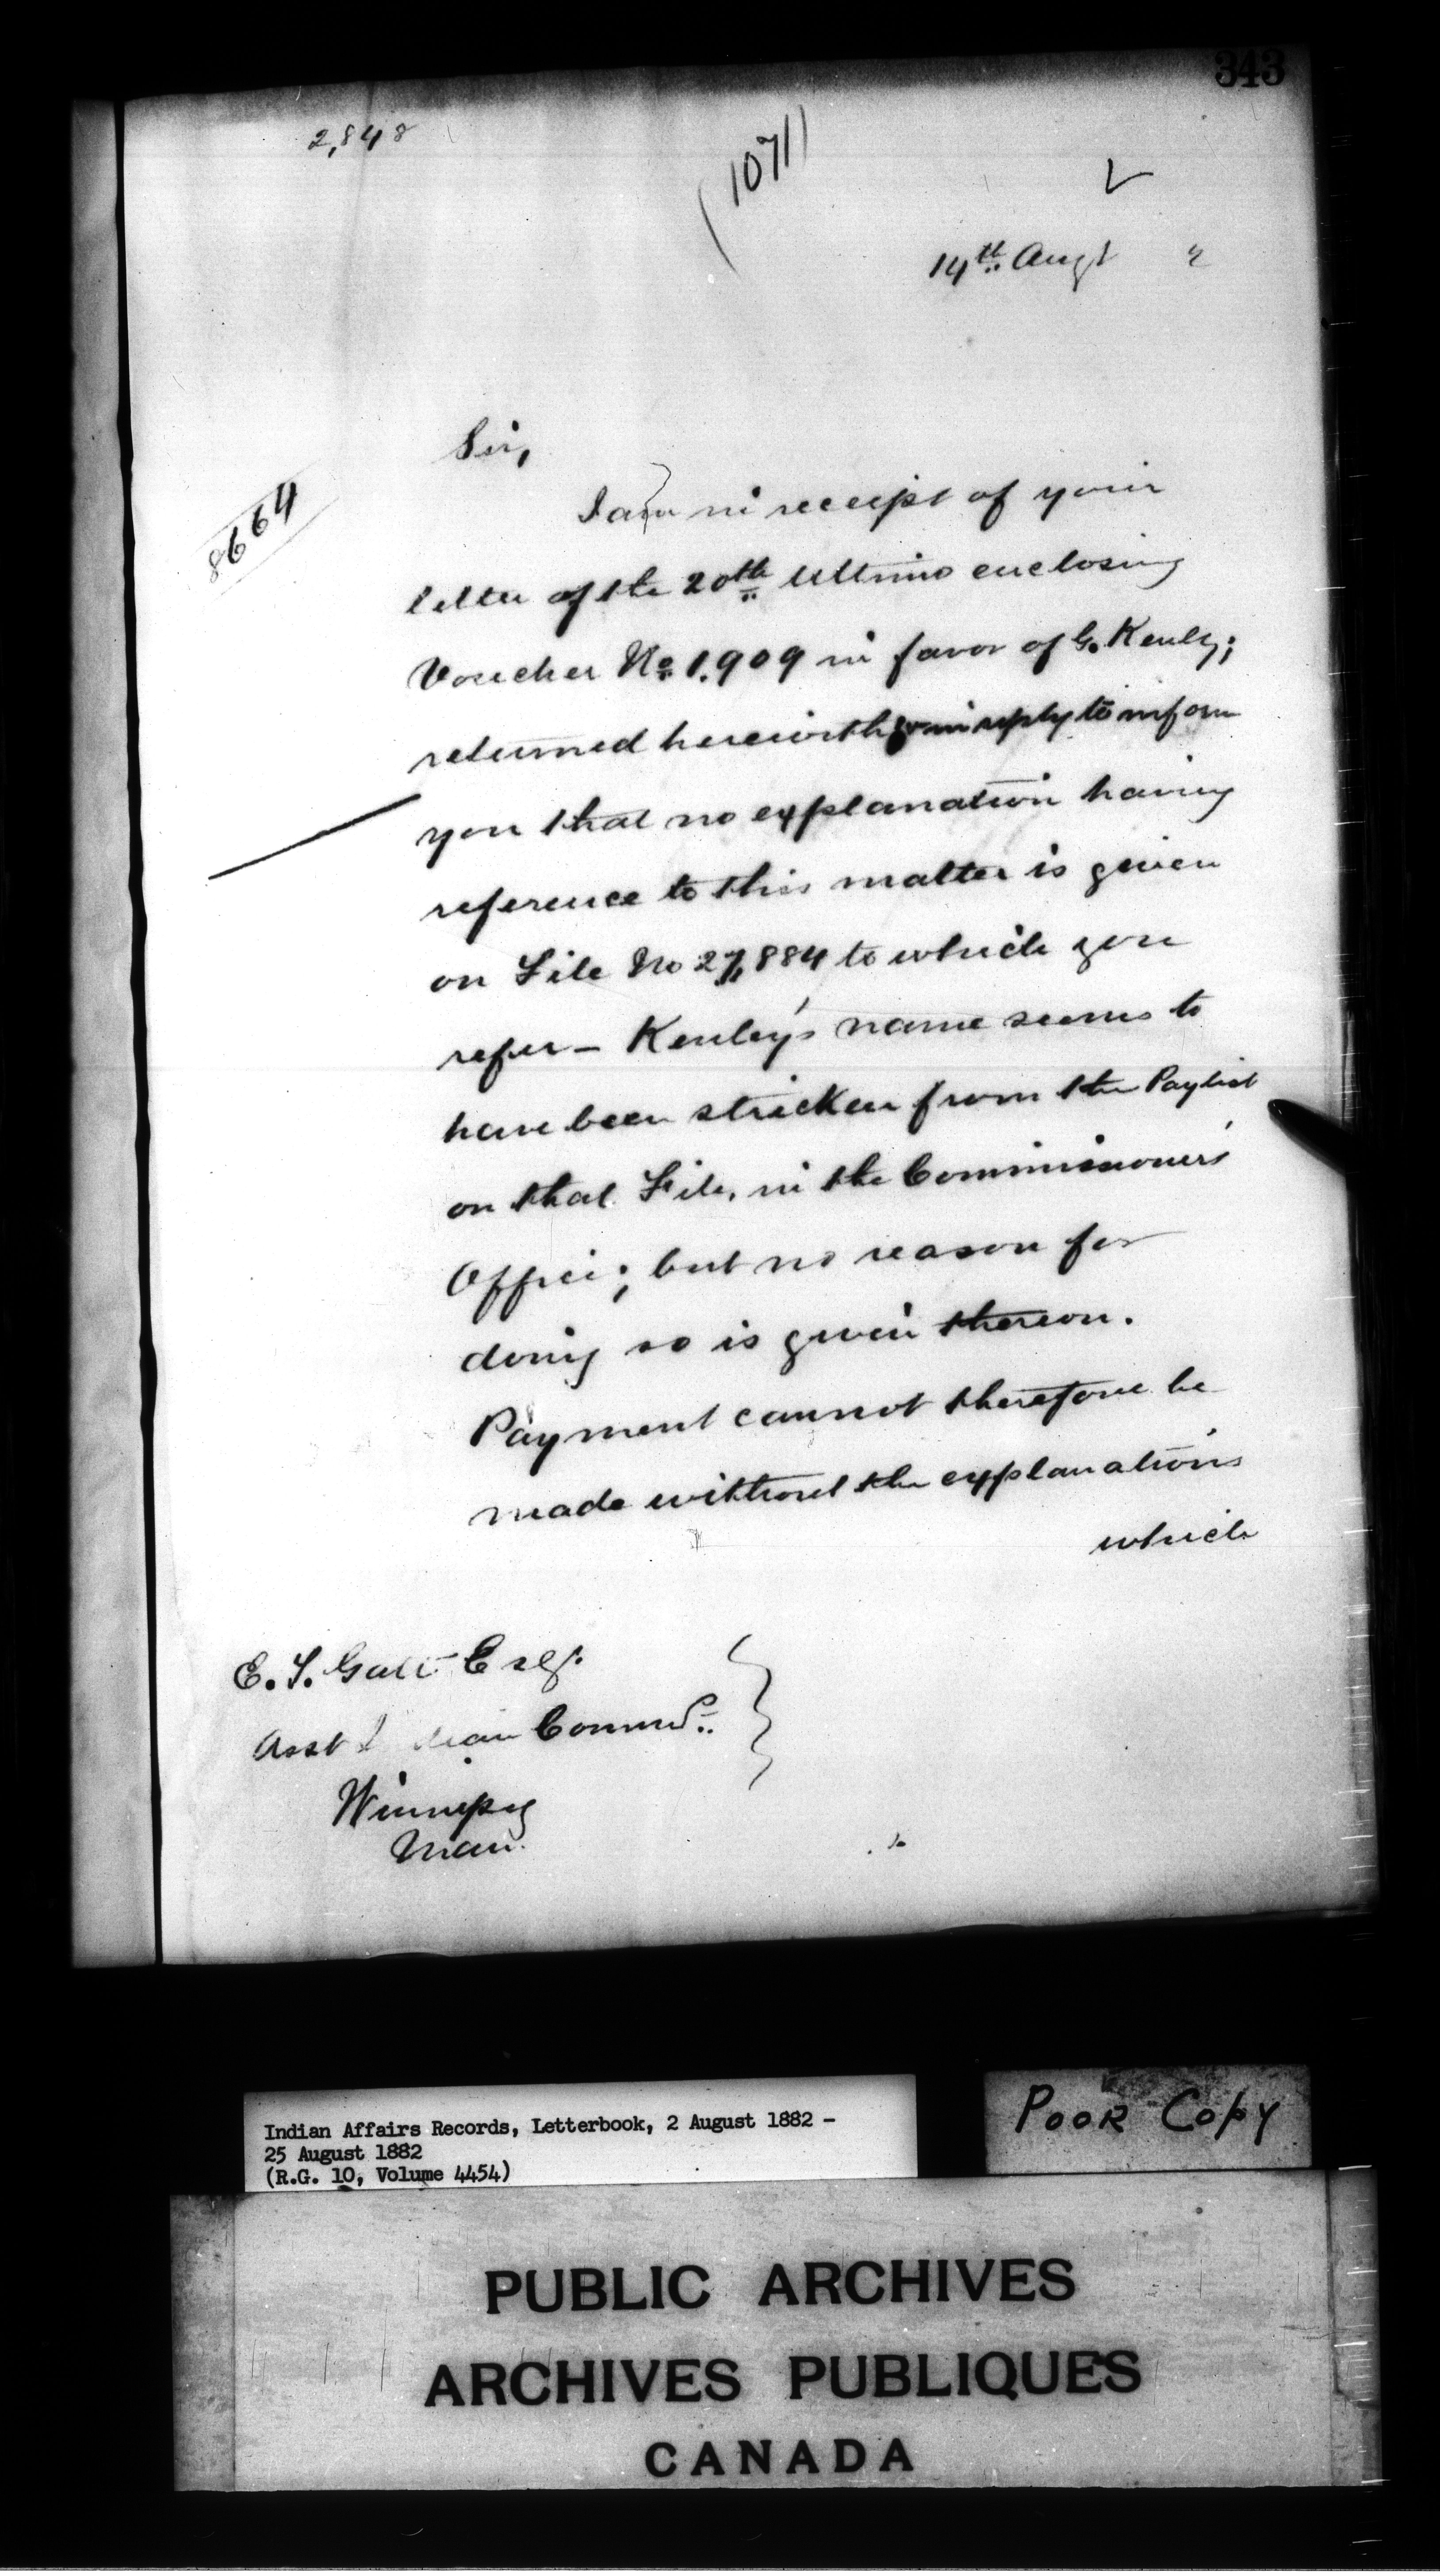 343
2,848
(1071)
14th Augt 2
Sir,
8664
I am in receipt of your
letter of the 20th Ultimo enclosing
Voucher No 1.909 in favor of G. Kenley;
returned herewith & in reply to inform
you that no explanation having
reference to this matter is given
on File No 27,884 to which you
refer — Kenley's name seems to
have been stricken from the Paylist
on that File, in the Commissioner's
Office; but no reason for
doing so is given thereon.
Payment cannot therefore be
made without the explanations
which
E. T. Galt Esq.
Asst Indian Commr.
Winnipeg
Man.
Indian Affairs Records, Letterbook, 2 August 1882 -
25 August 1882
(R.G. 10, Volume 4454)
POOR COPY
PUBLIC ARCHIVES
ARCHIVES PUBLIQUES
CANADA